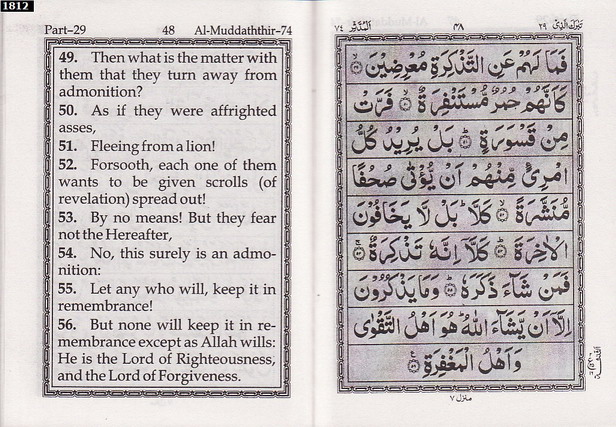 1812
Part–29 48 Al-Muddaththir–74
49. Then what is the matter with
them that they turn away from
admonition?
50. As if they were affrighted
asses,
51. Fleeing from a lion!
52. Forsooth, each one of them
wants to be given scrolls (of
revelation) spread out!
53. By no means! But they fear
not the Hereafter,
54. No, this surely is an admo-
nition:
55. Let any who will, keep it in
remembrance!
56. But none will keep it in re-
membrance except as Allah wills:
He is the Lord of Righteousness,
and the Lord of Forgiveness.
تبٰرك الذى ٢٩ ٤٨ المدثر ٧٤
فَمَا لَهُمْ عَنِ التَّذْكِرَةِ مُعْرِضِيْنَ ۝٤٩
كَاَنَّهُمْ حُمُرٌ مُّسْتَنْفِرَةٌ ۝٥٠ فَرَّتْ
مِنْ قَسْوَرَةٍ ۝٥١ بَلْ يُرِيْدُ كُلُّ
امْرِئٍ مِّنْهُمْ اَنْ يُّؤْتٰى صُحُفًا
مُّنَشَّرَةً ۝٥٢ كَلَّا بَلْ لَّا يَخَافُوْنَ
الْاٰخِرَةَ ۝٥٣ كَلَّا اِنَّهٗ تَذْكِرَةٌ ۝٥٤
فَمَنْ شَآءَ ذَكَرَهٗ ۝٥٥ وَمَا يَذْكُرُوْنَ
اِلَّا اَنْ يَّشَآءَ اللّٰهُ هُوَ اَهْلُ التَّقْوٰى
وَاَهْلُ الْمَغْفِرَةِ ۝٥٦
منزل ٧